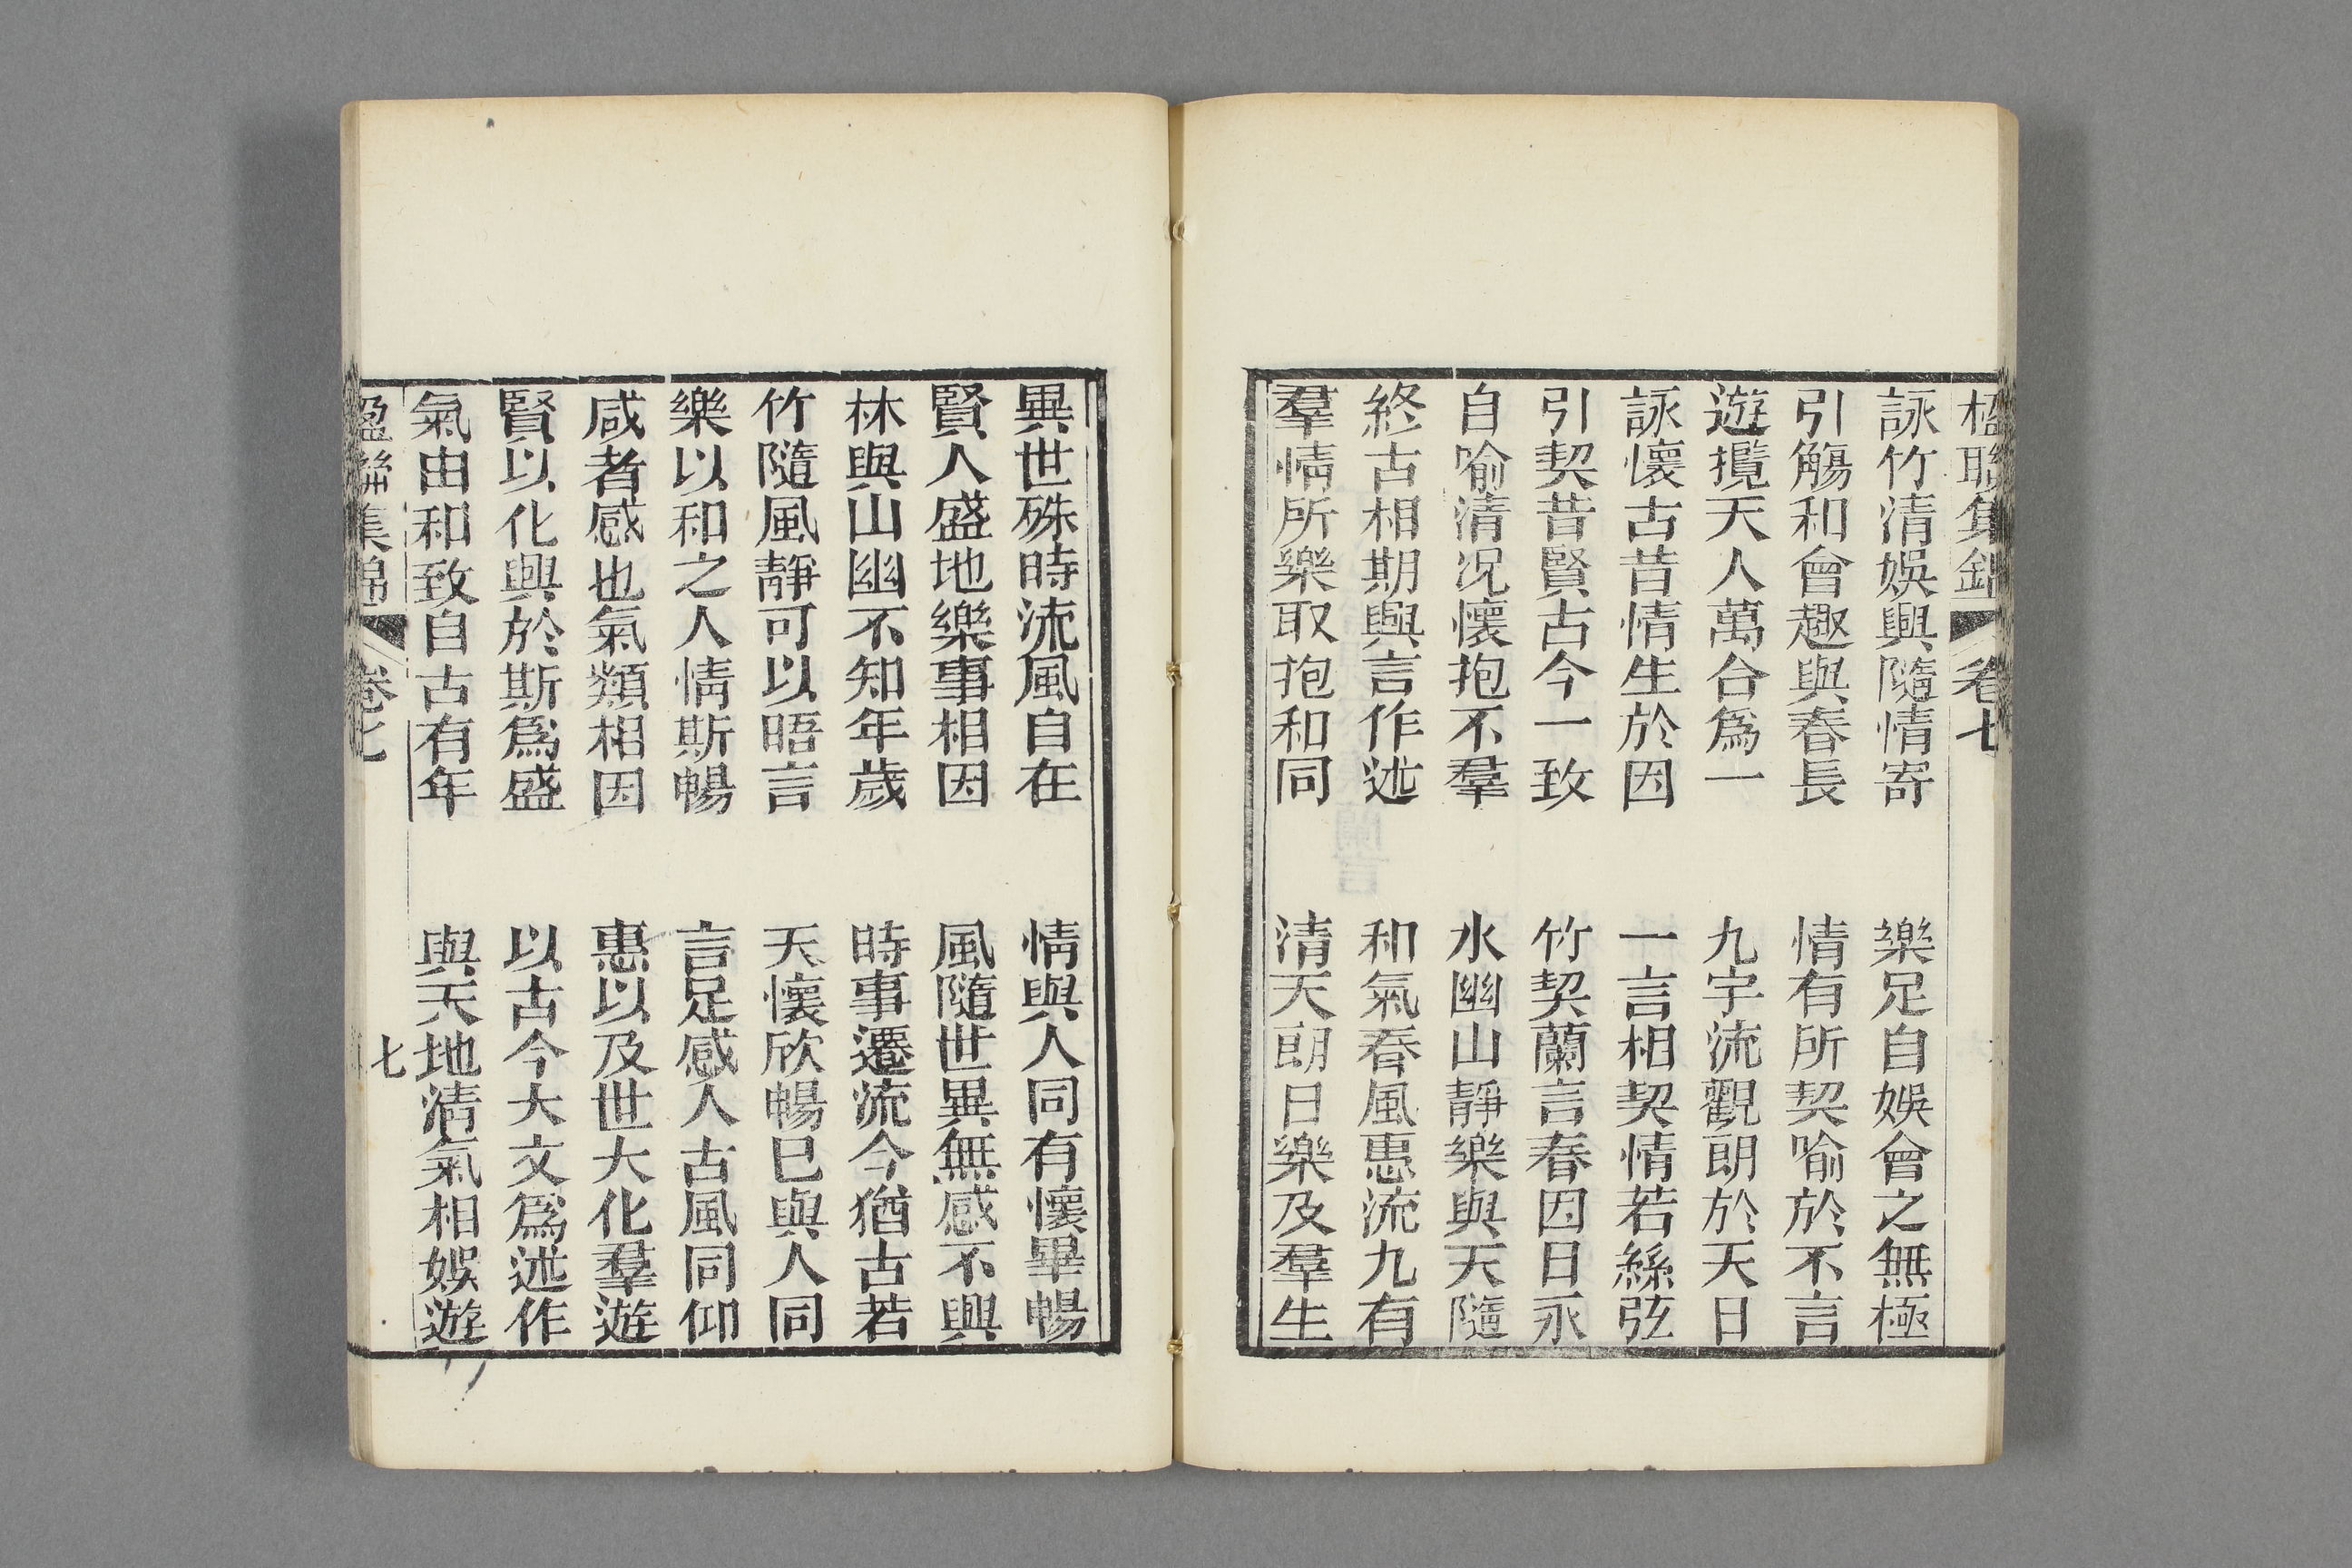 楹聯集錦 卷七
詠竹清娛興隨情寄 樂足自娛會之無極
引觴和會趣與春長 情有所契喻於不言
遊攬天人萬合爲一 九宇流觀朗於天日
詠懷古昔情生於因 一言相契情若絲弦
引契昔賢古今一致 竹契蘭言春因日永
自喻清況懷抱不羣 水幽山靜樂與天隨
終古相期與言作述 和氣春風惠流九有
羣情所樂取抱和同 清天朗日樂及羣生
異世殊時流風自在 情與人同有懷畢暢
賢人盛地樂事相因 風隨世異無感不興
林與山幽不知年歲 時事遷流今猶古若
竹隨風靜可以晤言 天懷欣暢已與人同
樂以和之人情斯暢 言足感人古風同仰
咸者感也氣類相因 惠以及世大化羣遊
賢以化興於斯爲盛 以古今大文爲述作
氣由和致自古有年 與天地清氣相娛遊
楹聯集錦 卷七 七